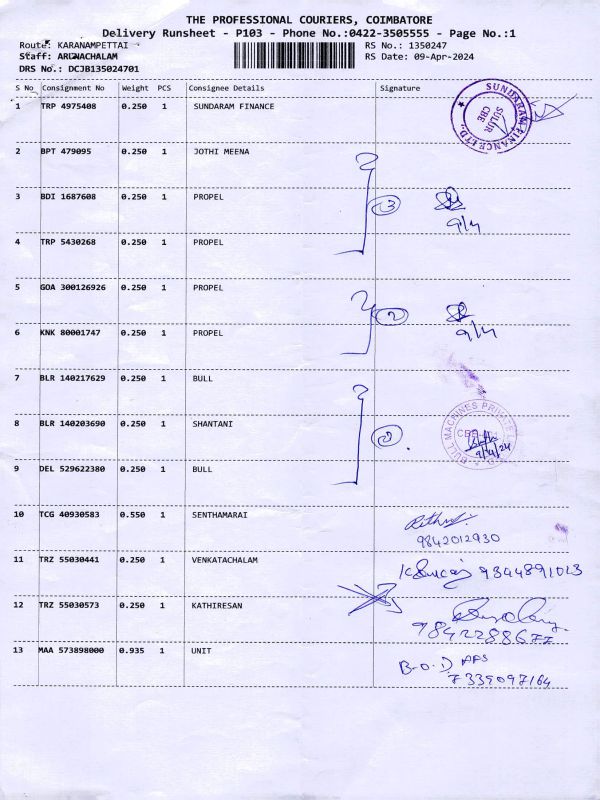 THE PROFESSIONAL COURIERS, COIMBATORE
Delivery Runsheet - P103 - Phone No.:0422-3505555 - Page No.:1
Route: KARANAMPETTAI RS No.: 1350247
Staff: ARUNACHALAM RS Date: 09-Apr-2024
DRS No.: DCJB135024701
S No Consignment No Weight PCS Consignee Details Signature
1 TRP 4975408 0.250 1 SUNDARAM FINANCE
SUNDARAM FINANCE LTD. SULUR CBE
2 BPT 479095 0.250 1 JOTHI MEENA
3 BDI 1687608 0.250 1 PROPEL 3
9/4
4 TRP 5430268 0.250 1 PROPEL
5 GOA 300126926 0.250 1 PROPEL
2
6 KNK 80001747 0.250 1 PROPEL 9/4
7 BLR 140217629 0.250 1 BULL
8 BLR 140203690 0.250 1 SHANTANI
BULL MACHINES PRIVATE CBE 9/4/24
9 DEL 529622380 0.250 1 BULL
10 TCG 40930583 0.550 1 SENTHAMARAI
9842012930
11 TRZ 55030441 0.250 1 VENKATACHALAM
9344891023
12 TRZ 55030573 0.250 1 KATHIRESAN
9842288677
13 MAA 573898000 0.935 1 UNIT
B.O.D
7339097164